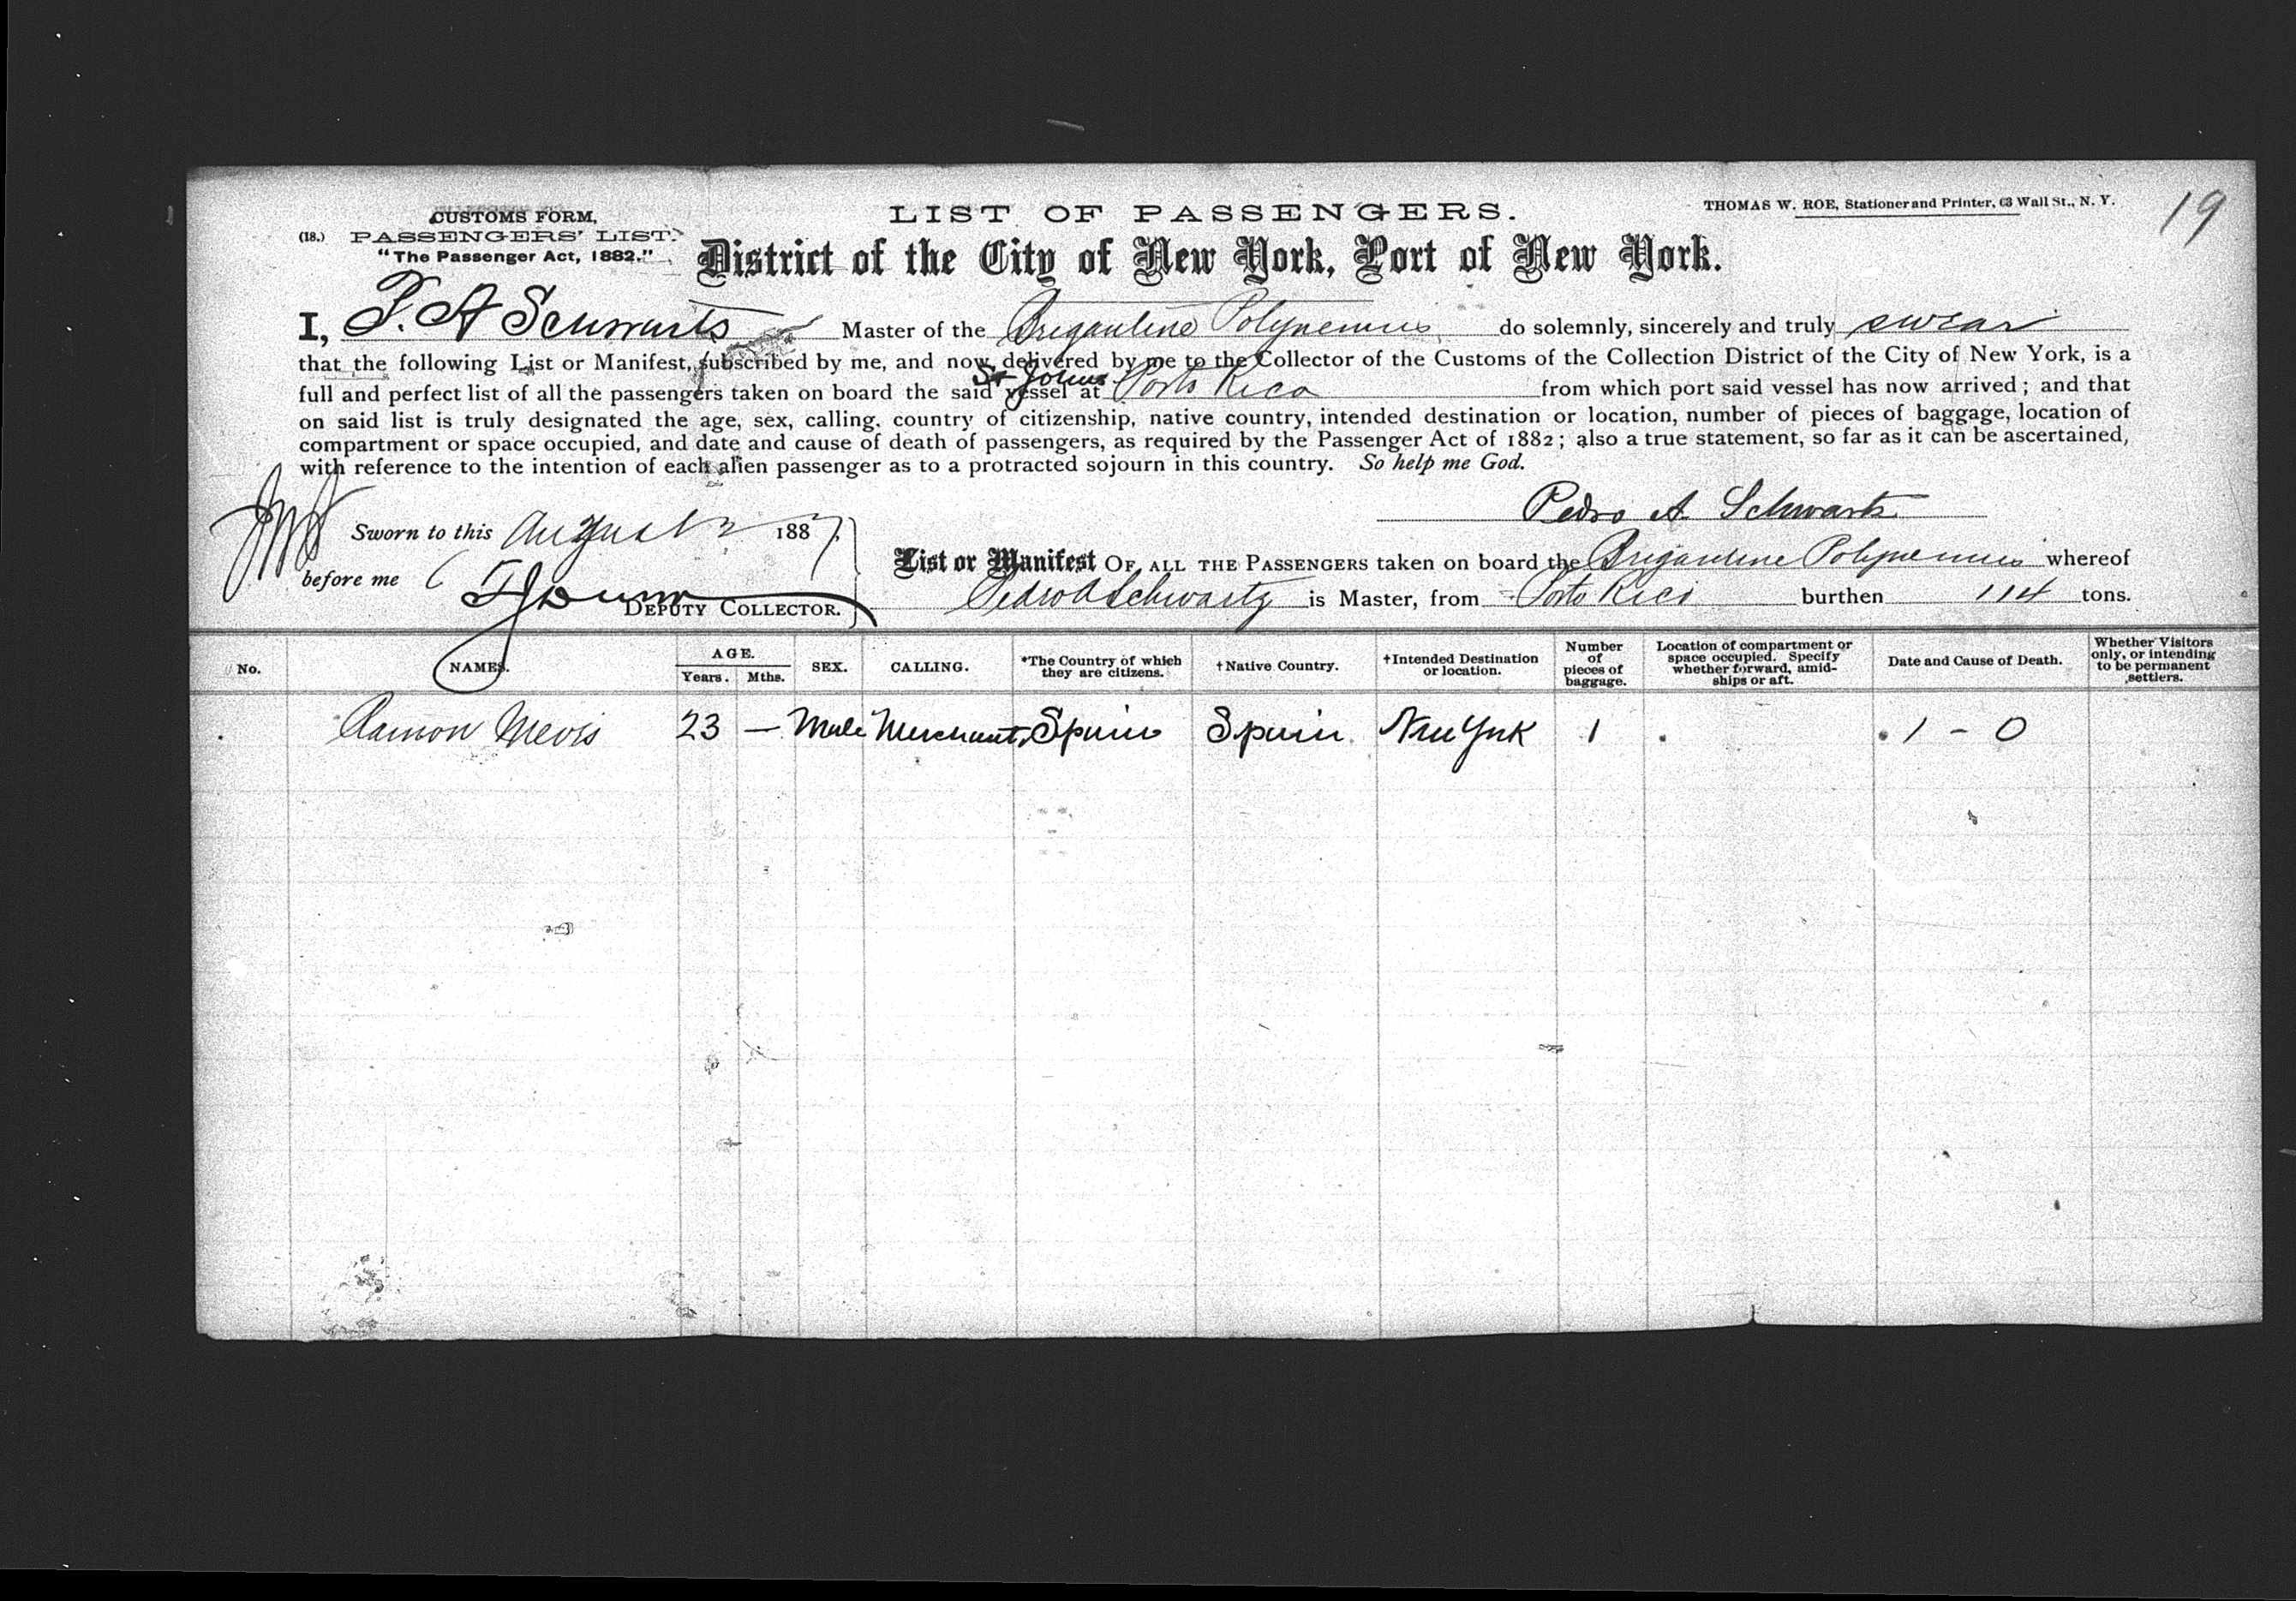 CUSTOMS FORM,
(18.) PASSENGERS' LIST.
"The Passenger Act, 1882."
LIST OF PASSENGERS.
THOMAS W. ROE, Stationer and Printer, 63 Wall St., N. Y.
19
District of the City of New York, Port of New York.
I, P. A Schwarts Master of the Brigantine Polynemus do solemnly, sincerely and truly swear
that the following List or Manifest, subscribed by me, and now delivered by me to the Collector of the Customs of the Collection District of the City of New York, is a
St Johns
full and perfect list of all the passengers taken on board the said vessel at Porto Rico from which port said vessel has now arrived; and that
on said list is truly designated the age, sex, calling, country of citizenship, native country, intended destination or location, number of pieces of baggage, location of
compartment or space occupied, and date and cause of death of passengers, as required by the Passenger Act of 1882; also a true statement, so far as it can be ascertained,
with reference to the intention of each alien passenger as to a protracted sojourn in this country. So help me God.
Pedro A. Schwartz
Sworn to this August 2 1887.
before me
DEPUTY COLLECTOR.
List or Manifest OF ALL THE PASSENGERS taken on board the Brigantine Polynemus whereof
Pedro A Schwartz is Master, from Porto Rico burthen 114 tons.
No. NAMES. AGE. Years. Mths. SEX. CALLING. *The Country of which they are citizens. †Native Country. †Intended Destination or location. Number of pieces of baggage. Location of compartment or space occupied. Specify whether forward, amidships or aft. Date and Cause of Death. Whether Visitors only, or intending to be permanent settlers.
Ramon Mevis 23 — Male Merchant Spain Spain New York 1 1 - 0